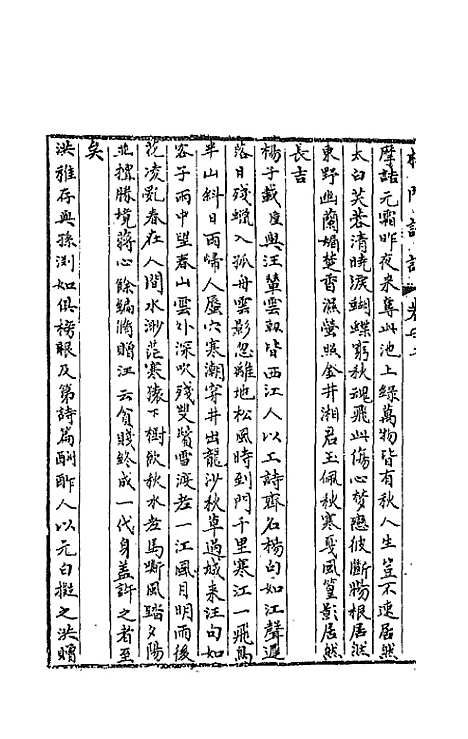 摩詰元霜昨夜來尊此池上綠萬物皆有秋人生豈不速居然
太白芙蓉清曉淚蝴蝶窮秋魂飛此傷心夢戀彼斷腸根居然
東野幽蘭媚楚香濕螢照金井湘君玉佩秋寒戛風篁影居然
長吉
楊子載與汪輦雲皆西江人以工詩齊名楊句如江聲遲
落日殘蠟入孤舟雲影忽離地松風時到門千里寒江一飛鳥
半山斜日兩歸人蜃穴寒潮穿井出龍沙秋草過城來汪句如
客子雨中望春山雲外深吹殘雙鬢雪渡老一江風月明雨後
花凌亂春在人間水渺茫寒猿下樹飲秋水老馬嘶風踏夕陽
並擅勝境蔣心餘編將贈江云貧賤終成一代身蓋許之者至
矣
洪稚存與孫淵如俱榜眼及第詩篇酬酢人以元白擬之洪贈